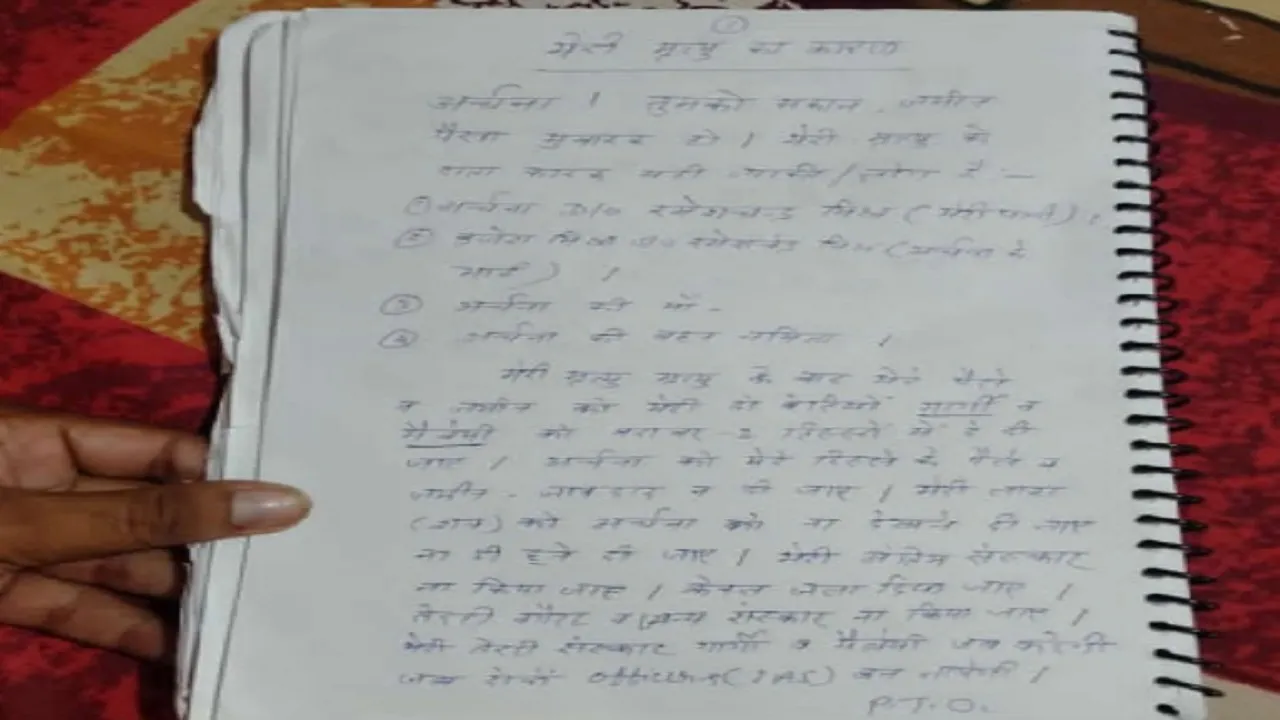 ①
मेरी मृत्यु का कारण
अर्चना । तुमको मकान, जमीन
पैसा मुबारक हो । मेरी मृत्यु के
कारक यही व्यक्ति/लोग है :—
① अर्चना D/O रमेशचन्द्र मिश्र (मेरी पत्नी) ।
② ब्रजेश मिश्र S/O रमेशचंद्र मिश्र (अर्चना के
भाई) ।
③ अर्चना की माँ -
④ अर्चना की बहन नमिता ।
मेरी मृत्यु के बाद मेरे पैसे
व जमीन को मेरी दो बेटियों गार्गी व
मैत्रेयी को बराबर २ हिस्सों में दे दी
जाए । अर्चना को मेरे हिस्से के पैसे व
जमीन - जायदाद न दी जाए । मेरी लाश
(शव) को अर्चना को ना देखने दी जाए
ना ही छूने दी जाए । मेरी अंतिम संस्कार
ना किया जाए । केवल जला दिया जाए ।
तेरही वगैरह व अन्य संस्कार ना किया जाए ।
मेरी तेरही संस्कार गार्गी व मैत्रेयी जब करेगी
जब दोनों officers (IAS) बन जायेगी ।
P.T.O.